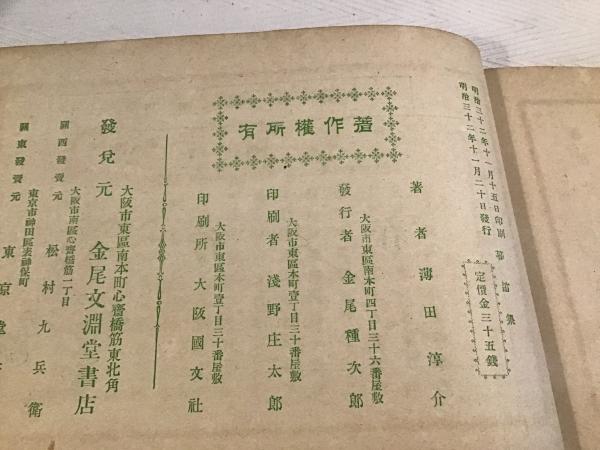 明治三十二年十一月十五日印刷
明治三十二年十一月二十日發行
暮笛集
定價金三十五錢
有所權作著
著者 薄田淳介
大阪市東區南本町四丁目三十六番屋敷
發行者 金尾種次郎
大阪市東區本町壹丁目三十番屋敷
印刷者 淺野庄太郎
大阪市東區本町壹丁目三十番屋敷
印刷所 大阪國文社
大阪市東區南本町心齋橋筋東北角
發兌元 金尾文淵堂書店
大阪市南區心齋橋筋一丁目
關西發賣元 松村九兵衛
東京市神田區表神保町
關東發賣元 東京堂